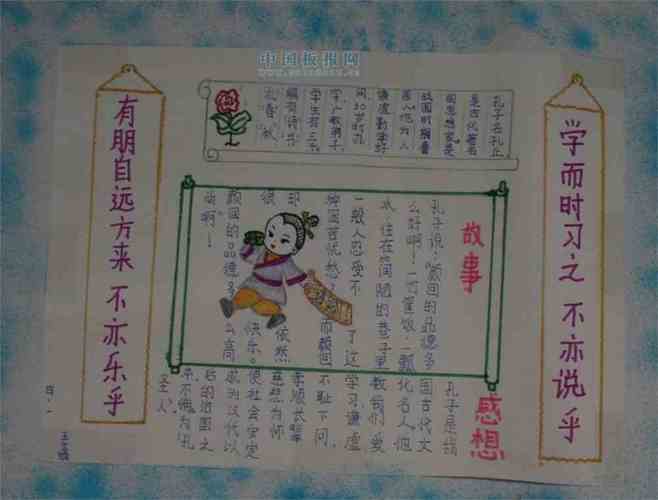 中国板报网
学而时习之 不亦说乎
有朋自远方来 不亦乐乎
孔子名孔丘
是古代著名
的思想家是
战国时期鲁
国人他为人
谦虚勤学好
问30岁时办
学广收弟子
学生有三千
编有诗书
春秋
故事
孔子说：“颜回的品德多
么好啊！一竹筐饭，一瓢
水，住在简陋的巷子里
一般人忍受不了这
种困苦忧愁
而颜回
却依然
很快乐。
颜回的品德多么高
尚啊！
感想
孔子是我
国古代文
化名人，他
教我们爱
学习谦虚
不耻下问，
孝顺长辈
慈悲为怀
使社会安定
成为汉代以
后的治国之
本不愧为“孔
圣人”
四·一